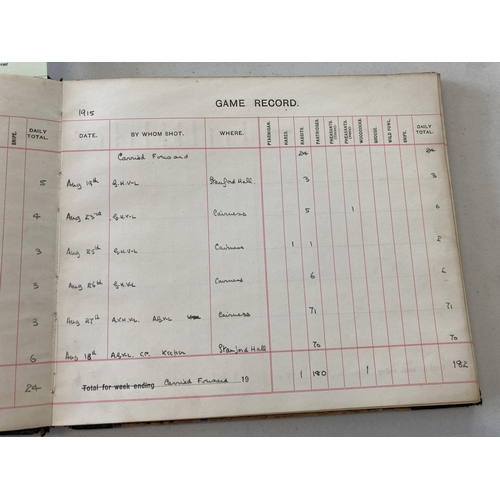 GAME RECORD.
1915
DATE. BY WHOM SHOT. WHERE. PTARMIGAN. HARES. RABBITS. PARTRIDGES. PHEASANTS PHEASANTS WOODCOCKS. GROUSE. WILD FOWL. SNIPE. DAILY TOTAL.
SNIPE. DAILY TOTAL.
Carried Forward 24 24
5 Aug 19th G.H.V-L Stanford Hall. 3 3
4 Aug 23rd G.H.V-L Cairness 5 1 6
3 Aug 25th G.H.V-L Cairness 1 1 2
3 Aug 26th G.H.V-L Cairness 6 6
3 Aug 27th Cairness 71 71
6 Aug 18th Stanford Hall 70 70
24 Total for week ending Carried Forward 19 1 180 1 182